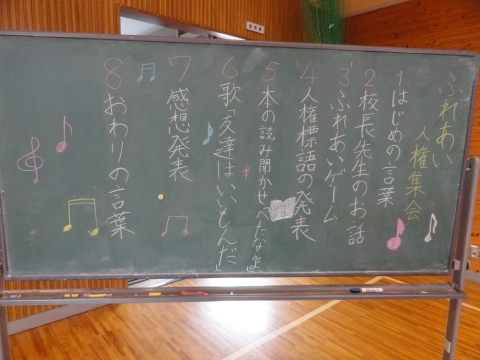 ふれあい
人権集会
1はじめの言葉
2校長先生のお話
3ふれあいゲーム
4人権標語の発表
5本の読み聞かせ「へたなんよ」
6歌「友達はいいもんだ」
7感想発表
8おわりの言葉